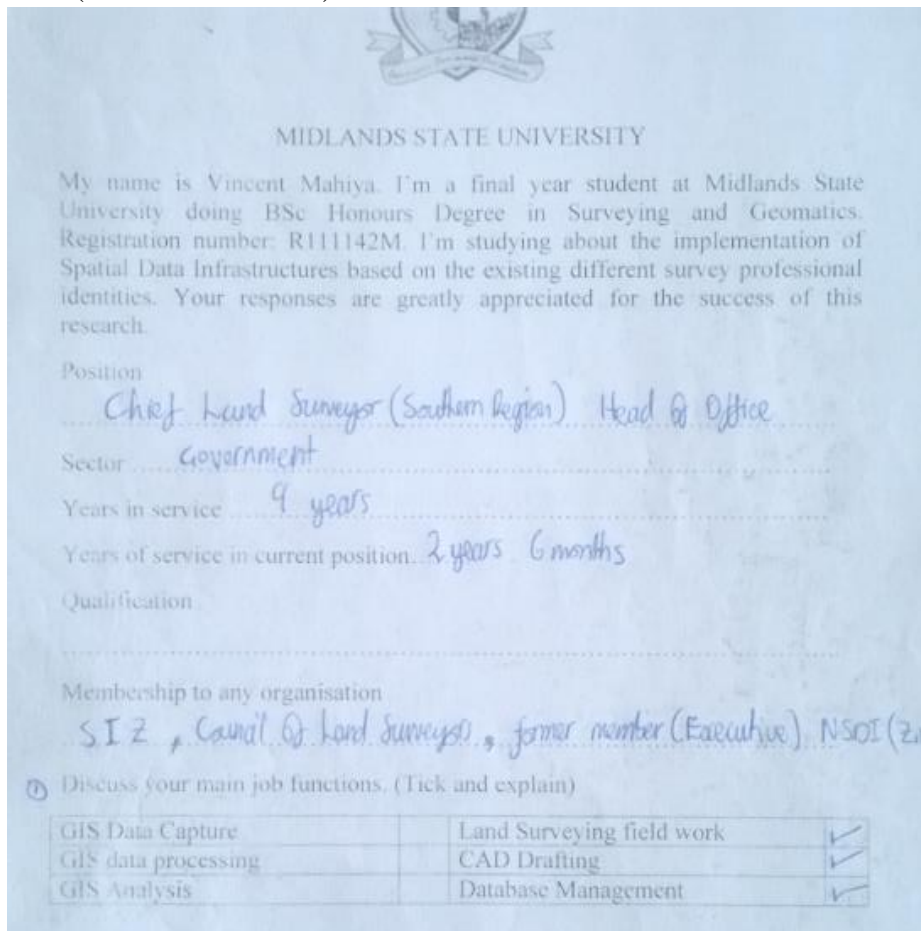 MIDLANDS STATE UNIVERSITY
My name is Vincent Mahiya. I'm a final year student at Midlands State
University doing BSc Honours Degree in Surveying and Geomatics.
Registration number: R111142M. I'm studying about the implementation of
Spatial Data Infrastructures based on the existing different survey professional
identities. Your responses are greatly appreciated for the success of this
research.
Position
Chief Land Surveyor (Southern Region) Head of Office
Sector Government
Years in service 9 years
Years of service in current position. 2 years 6 months
Qualification
Membership to any organisation
SIZ, Council of Land Surveyors, former member (Executive) NSDI
① Discuss your main job functions. (Tick and explain)
GIS Data Capture Land Surveying field work ✓
GIS data processing CAD Drafting ✓
GIS Analysis Database Management ✓